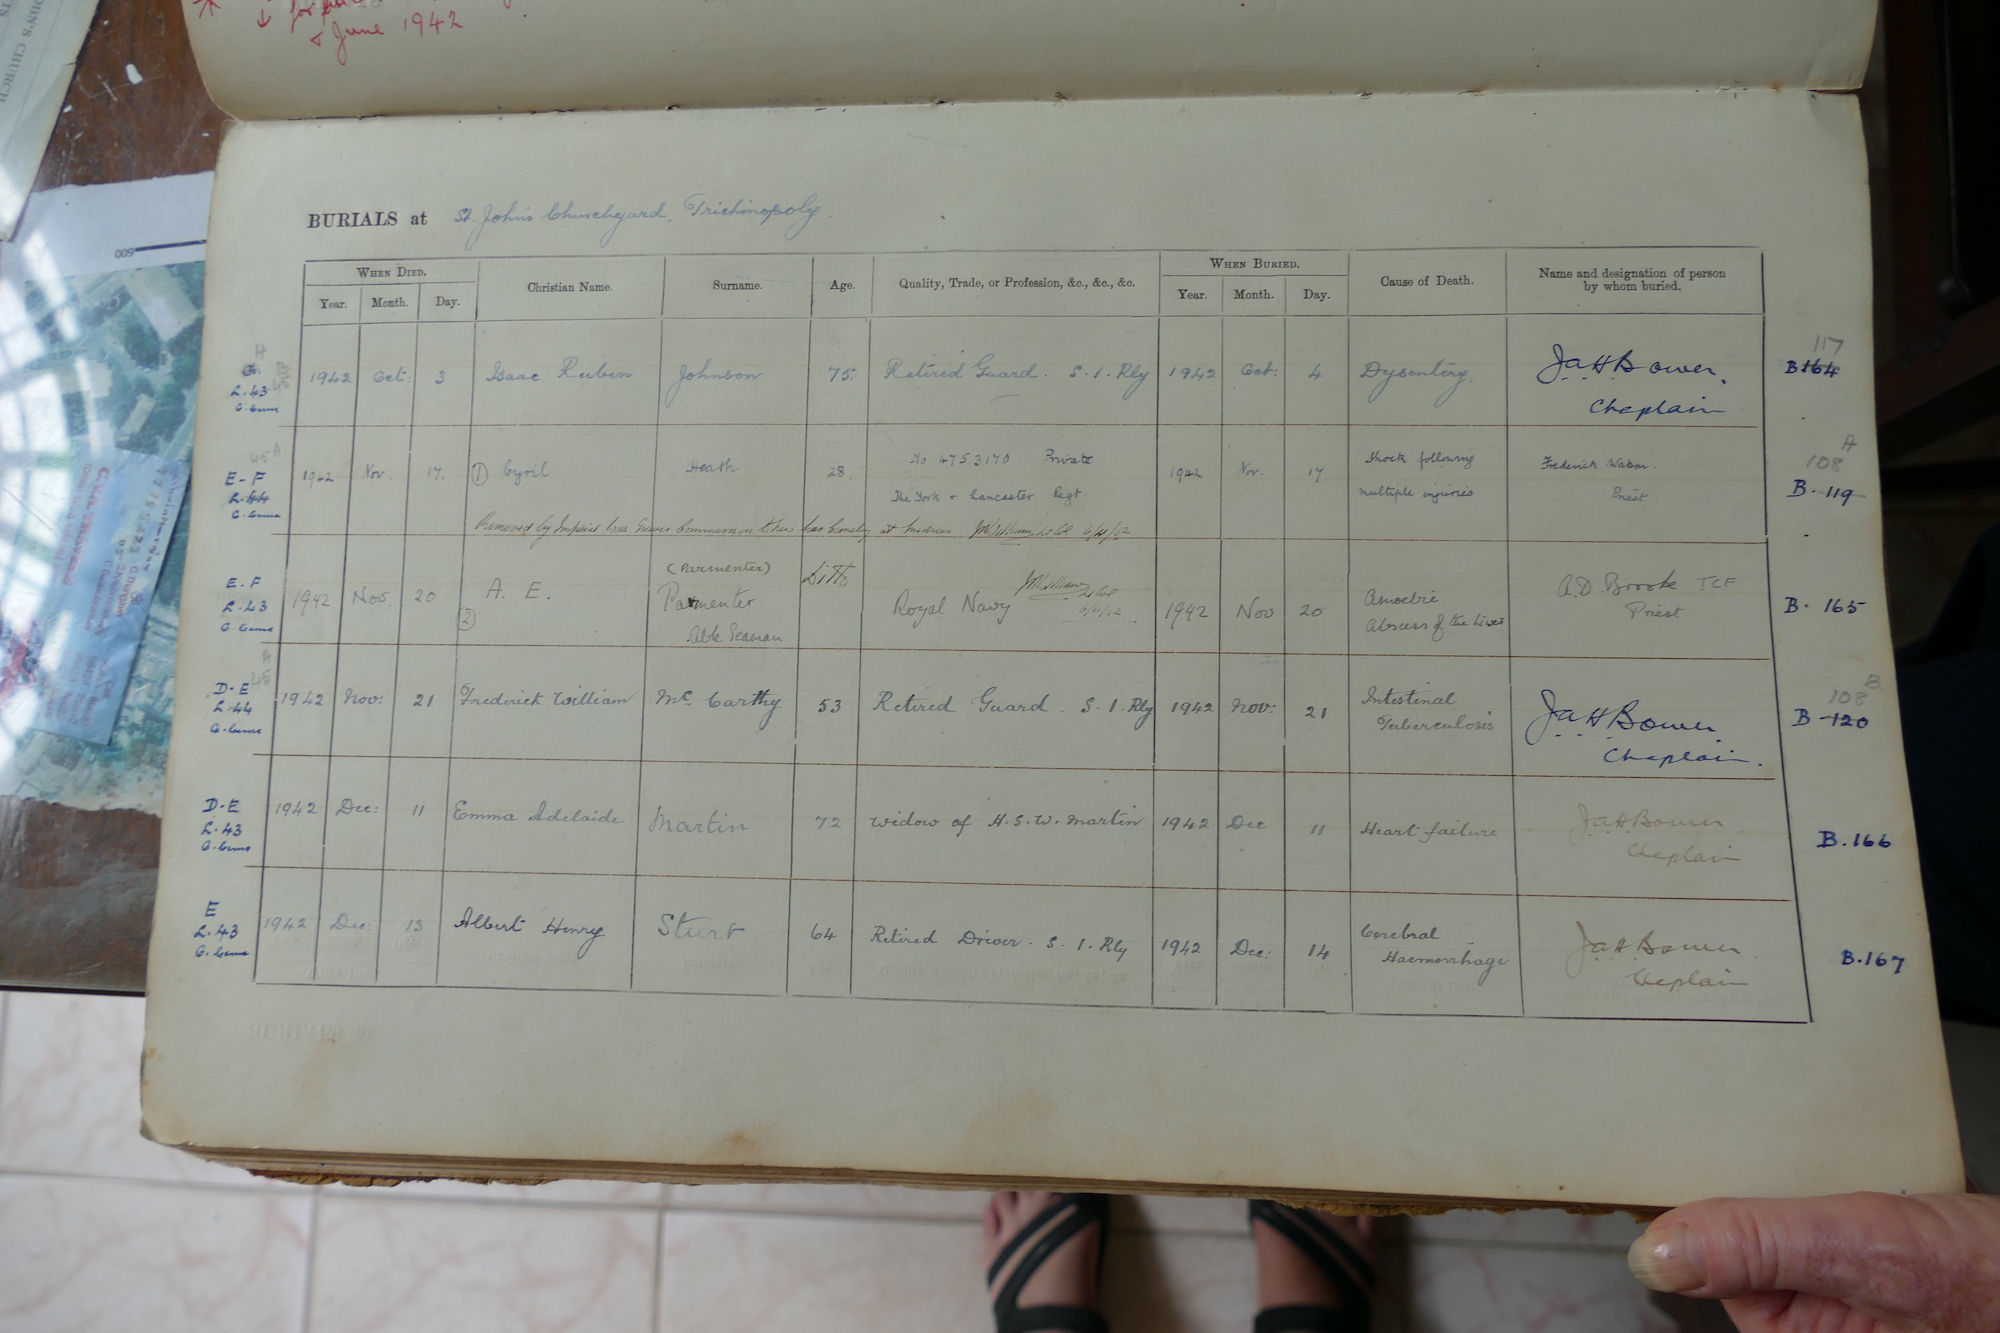 & June 1942
BURIALS at St. John's Churchyard, Trichinopoly.
WHEN DIED. Christian Name. Surname. Age. Quality, Trade, or Profession, &c., &c., &c. WHEN BURIED. Cause of Death. Name and designation of person by whom buried.
Year. Month. Day. Year. Month. Day.
L.43 1942 Oct: 3 Isaac Ruben Johnson 75. Retired Guard. S.I.Rly 1942 Oct: 4 Dysentery. JaHBower. Chaplain 117 B164
E-F L.44 1942 Nov. 17. (1) Cyril Heath 28. No 4753170 Private The York & Lancaster Regt. 1942 Nov. 17 Shock following multiple injuries Frederick Watson. Priest 108 A B. 119
Removed by Imperial War Graves Commission to their War Cemetery at Madras 6/11/52
E.F L.43 1942 Nov. 20 (2) A. E. (Parmenter) Parmenter Able Seaman Ditto Royal Navy 6/11/52 1942 Nov 20 Amoebic Abscess of the Liver A.D. Brooke TCF Priest B. 165
D-E L.44 1942 Nov: 21 Frederick William McCarthy 53 Retired Guard. S.I.Rly 1942 Nov: 21 Intestinal Tuberculosis JaHBower. Chaplain. 108 B B 120
D-E L.43 1942 Dec: 11 Emma Adelaide Martin 72 widow of H.S.W. Martin 1942 Dec 11 Heart failure JaHBower Chaplain B.166
E L.43 1942 Dec: 13 Albert Henry Sturt 64 Retired Driver. S.I.Rly 1942 Dec: 14 Cerebral Haemorrhage JaHBower Chaplain B.167